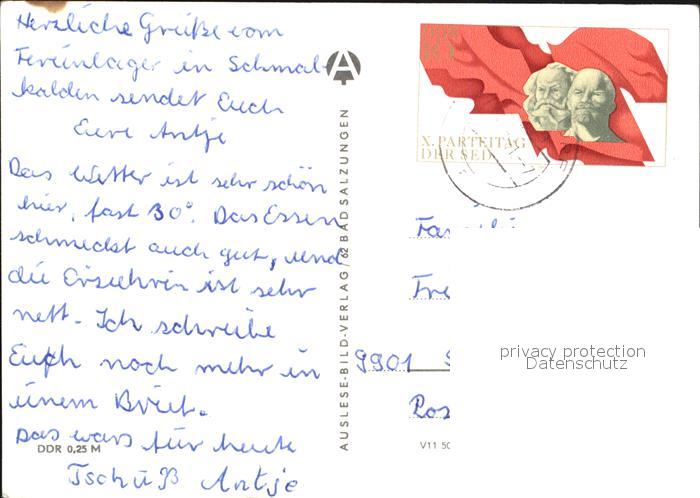 Herzliche Grüße vom
Ferienlager in Schmal-
kalden sendet Euch
Eure Antje
Das Wetter ist sehr schön
hier, fast 30°. Das Essen
schmeckt auch gut, und
die Erzieherin ist sehr
nett. Ich schreibe
Euch noch mehr in
einem Brief.
Das wars für heute
Tschüß Antje
DDR 0,25 M
AUSLESE-BILD-VERLAG / 62 BAD SALZUNGEN
A
DDR
X. PARTEITAG
DER SED
Fre
9901
Pos
V11 50
privacy protection
Datenschutz